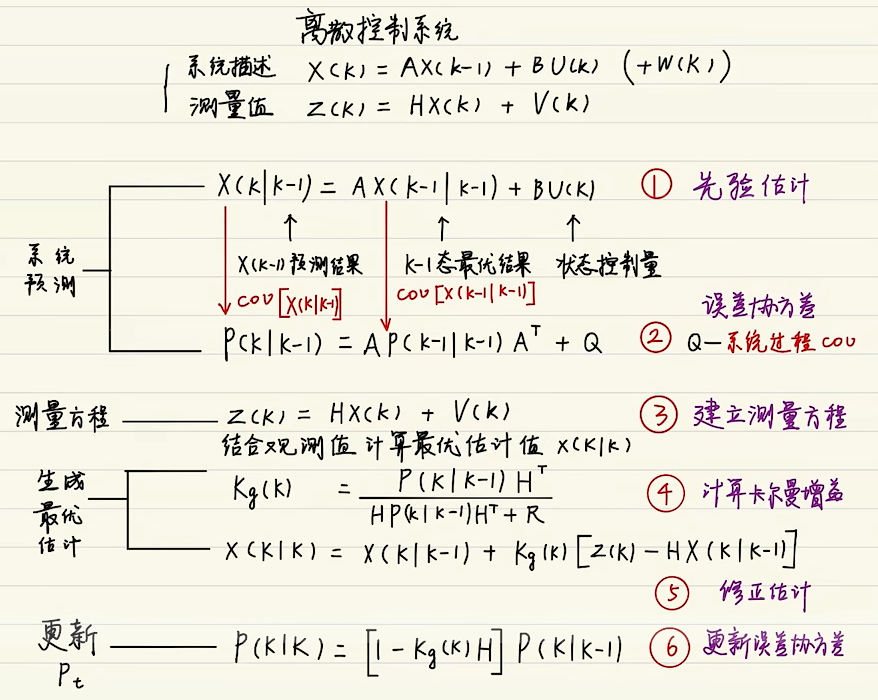 离散控制系统
系统描述 X(K) = AX(K-1) + BU(K) (+W(K))
测量值 Z(K) = HX(K) + V(K)
X(K|K-1) = AX(K-1|K-1) + BU(K) ① 先验估计
↑ ↑ ↑
系统
预测
X(K-1)预测结果 K-1态最优结果 状态控制量
cov[X(K|K-1)] cov[X(K-1|K-1)]
误差协方差
P(K|K-1) = AP(K-1|K-1)Aᵀ + Q ② Q—系统过程cov
测量方程 Z(K) = HX(K) + V(K) ③ 建立测量方程
结合观测值计算最优估计值 X(K|K)
生成
最优
估计
Kg(K) = P(K|K-1)Hᵀ / HP(K|K-1)Hᵀ + R ④ 计算卡尔曼增益
X(K|K) = X(K|K-1) + Kg(K)[Z(K) - HX(K|K-1)]
⑤ 修正估计
更新
Pt
P(K|K) = [1 - Kg(K)H]P(K|K-1) ⑥ 更新误差协方差